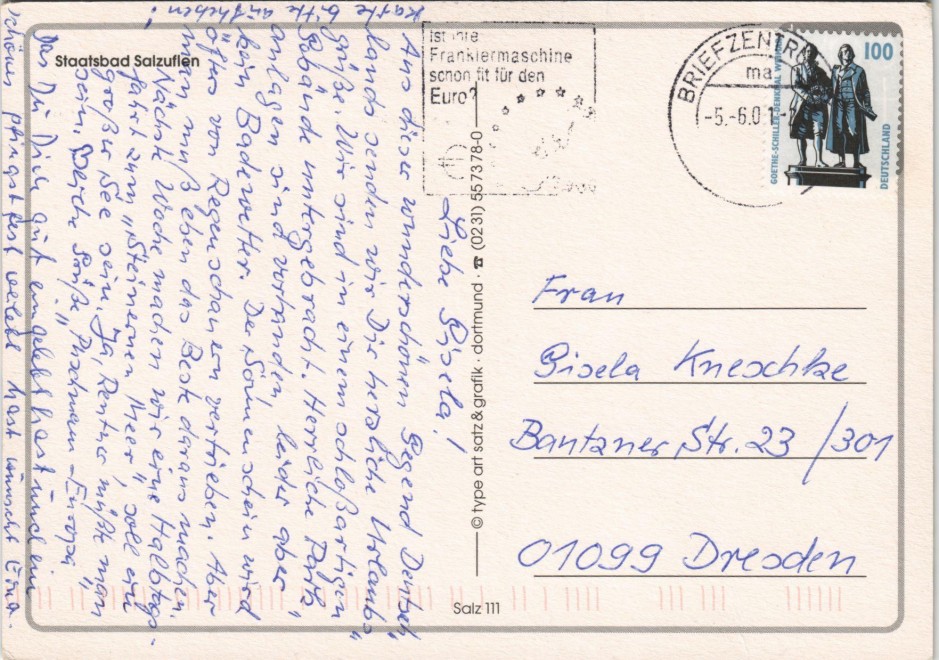 Staatsbad Salzuflen
Ist Ihre
Frankiermaschine
schon fit für den
Euro?
BRIEFZENTR
ma
-5.-6.0
100
GOETHE-SCHILLER-DENKMAL
DEUTSCHLAND
Liebe Gisela!
Aus dieser wunderschönen Gegend Deutsch"
lands senden wir Dir herzliche Urlaubs"
grüße. Wir sind in einem schloßartigen
Gebäude untergebracht. Herrliche Park"
anlagen sind vorhanden, leider aber
kein Badewetter. Der Sonnenschein wird
öfter von Regenschauern vertrieben. Aber
man muß eben das Beste daraus machen.
Nächste Woche machen wir eine Halbtags-
fahrt zum "Steinernen Meer", soll ein
großer See sein. Ja, Rentner müßte man
sein. Herzliche Grüße
Das Du Dich gut eingelebt hast und ein
schönes Pfingstfest verlebt hast wünscht Erna
Karte bitte aufheben!
© type art satz & grafik · dortmund · ☎ (0231) 557378-0
Frau
Gisela Kneschke
Bautzner Str. 23 /301
01099 Dresden
Salz 111